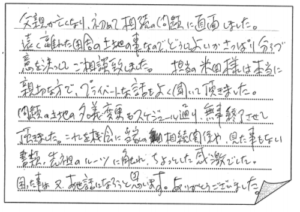 父親が亡くなり、初めて相続の問題に直面しました。
遠く離れた田舎の土地の事なのでどうしよいかさっぱり分らず
意を決してご相談致しました。 担当の米田様は本当に
親切な方で、プライベートな話もよく聞いて頂きました。
問題の土地の名義変更もスケジュール通り、無事終了させて
頂きました。これを機会に 相続関係や、見た事もない
書類、先祖のルーツに触れ、ちょっとした感激でした。
困った事は又お世話になろうと思います。ありがとうございました。